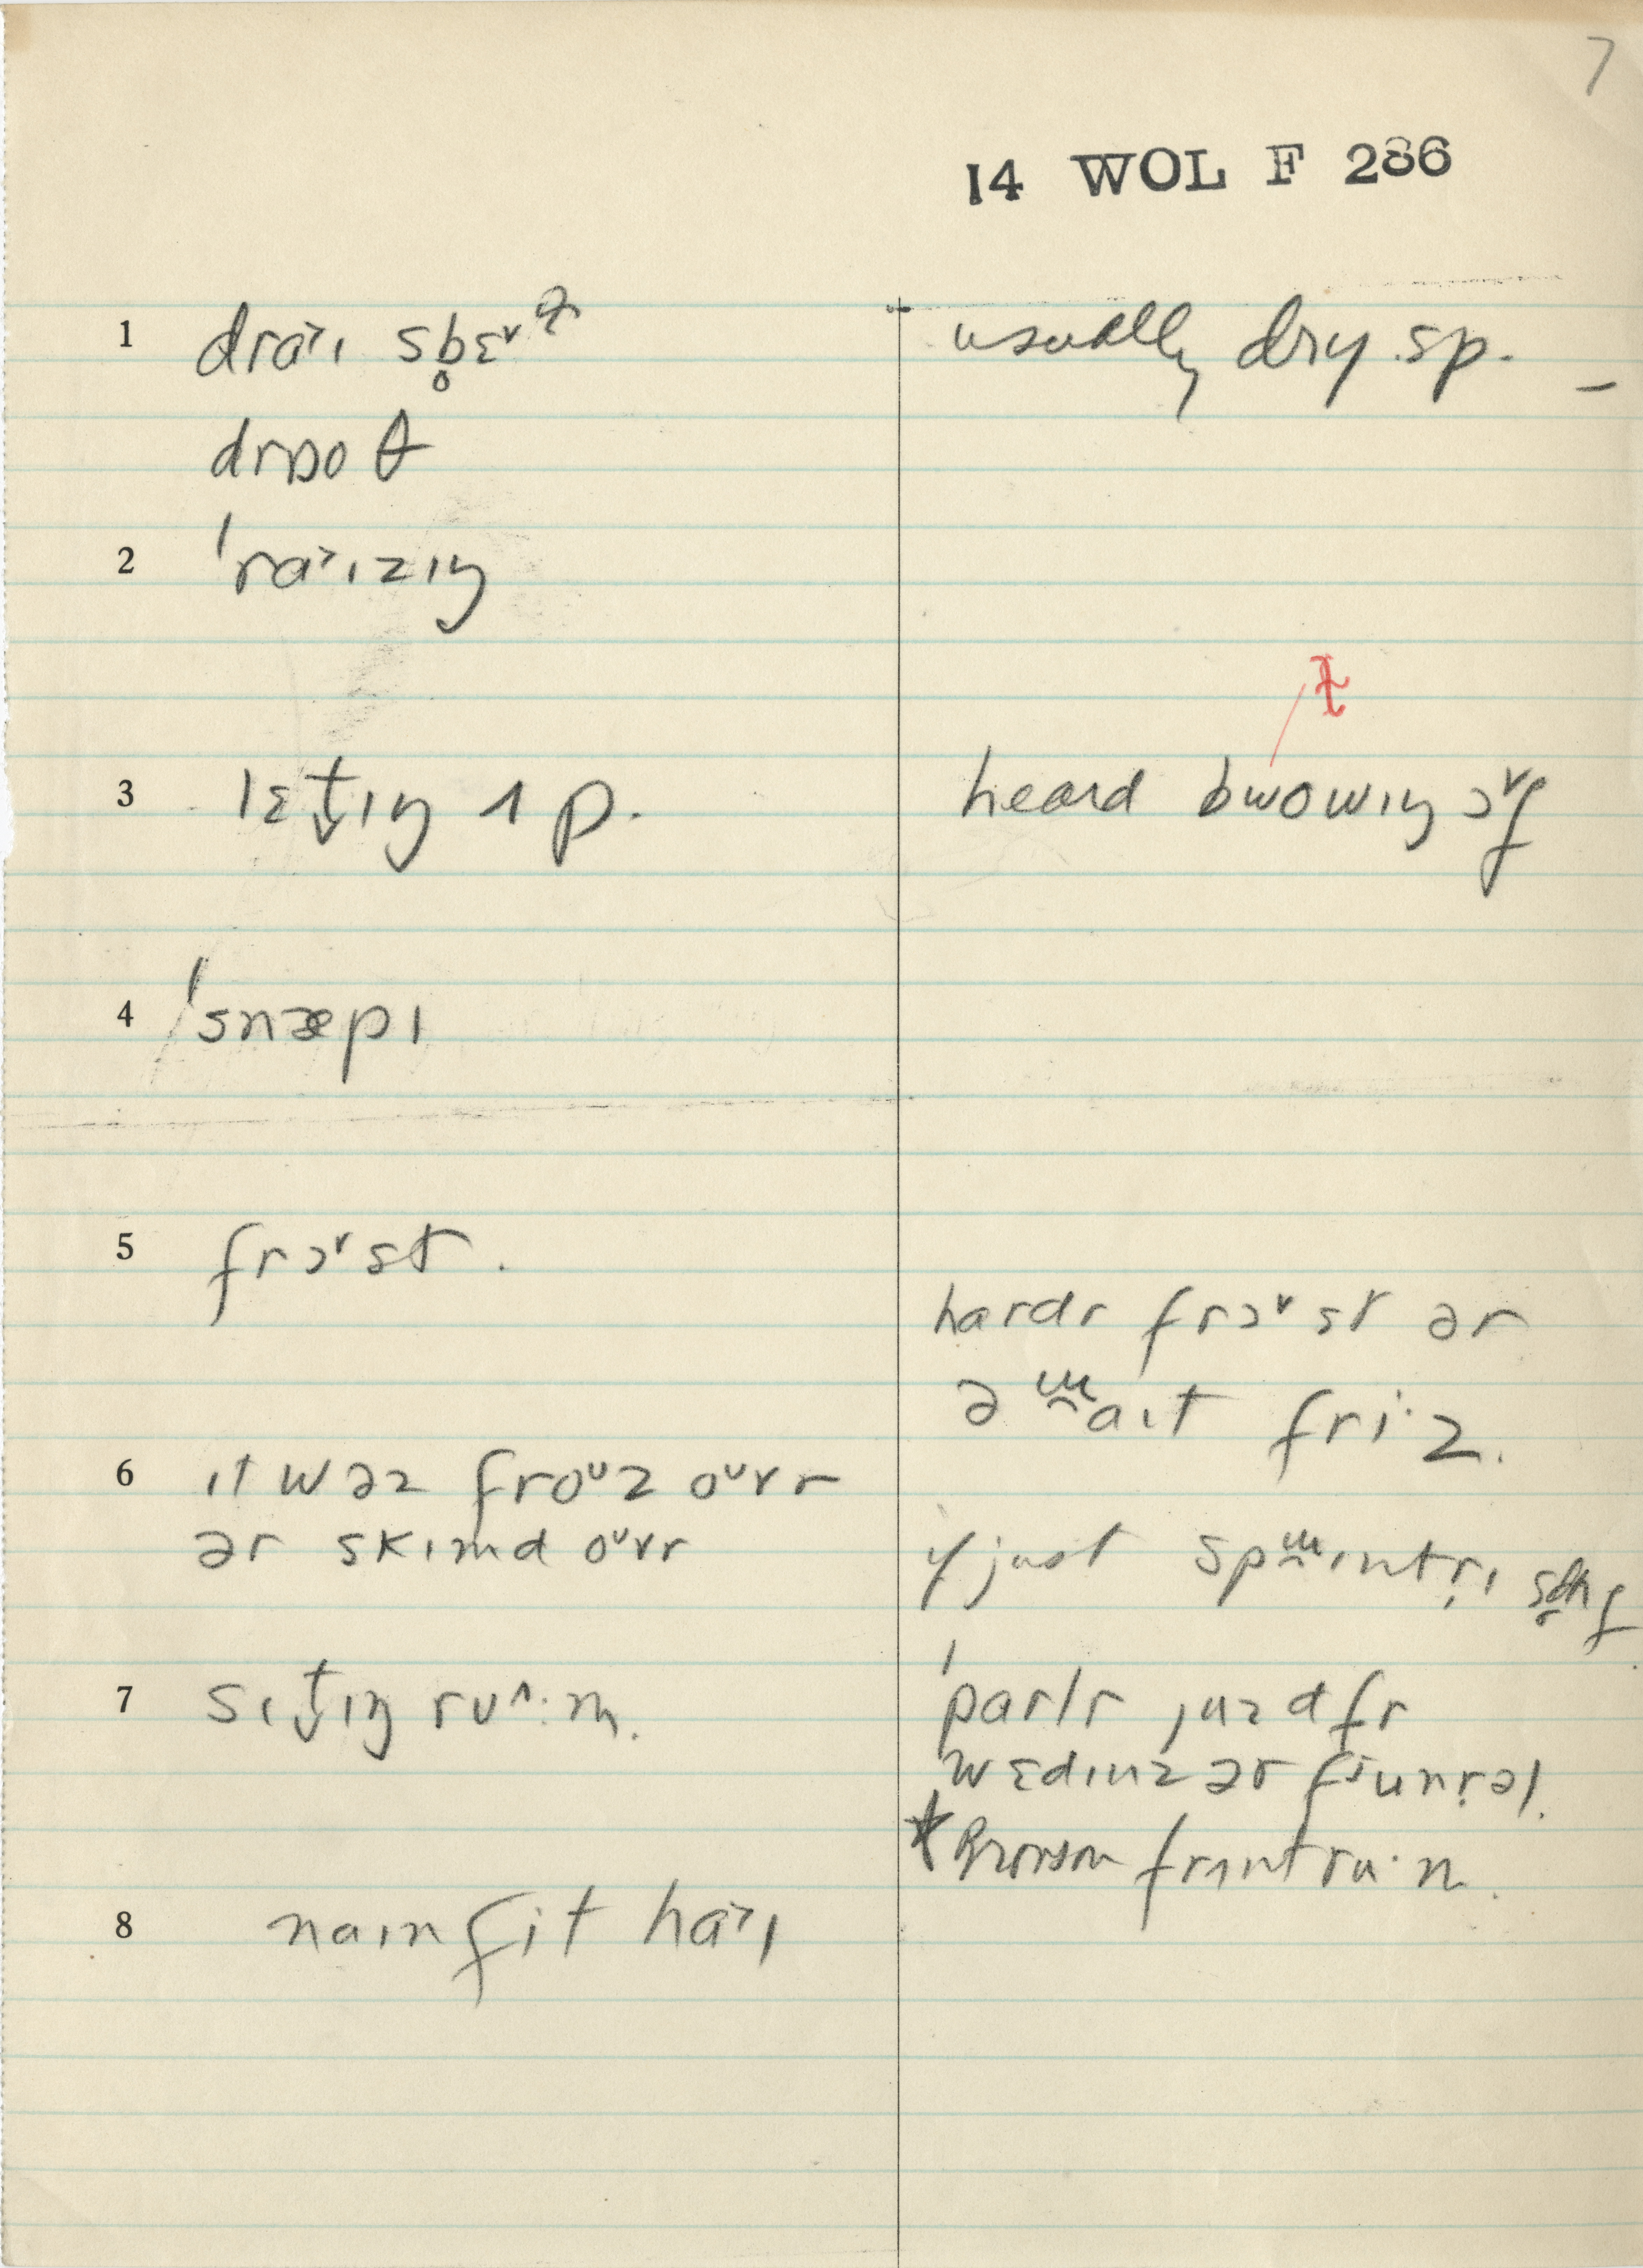 7
14 WOL F 286
1 dra˃ɪ sb̥ɛ˅ɫ
usually dry sp. –
drɒoθ
2 ˈra˃ɪzɪŋ
ɫ
3 lɛt̬ɪŋ ʌp.
heard bwowɪŋ ɔ˅f
4 ˈsnæpɪ
5 frɔ˅st.
hardr frɔ˅st ər
ə ʍaɪt fri·z.
6 ɪt wəz froᴜz oᴜvr
ər skɪmd oᴜvr
if just
7 sɪt̬ɪŋ ru^·m.
ˈparlr juzd fr
wɛdɪnz ər fjunr̩əl.
* Bronson frʌnt ru·m.
8 naɪn fit ha˃ɪ